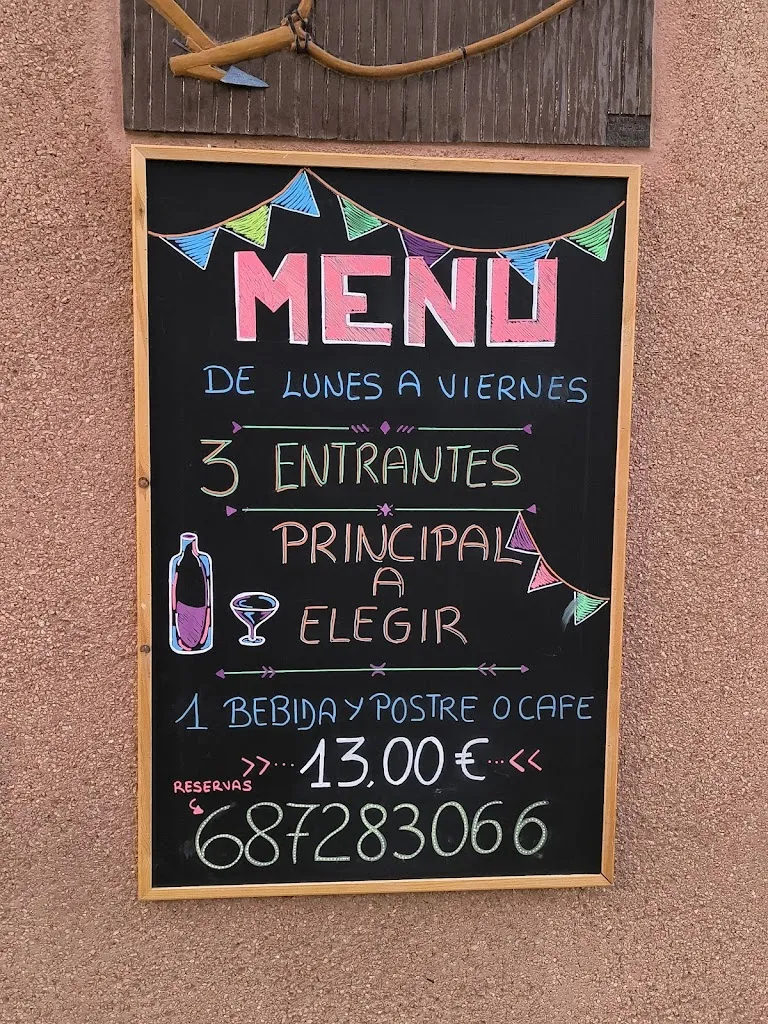 MENU
DE LUNES A VIERNES
3 ENTRANTES
PRINCIPAL
A
ELEGIR
1 BEBIDA Y POSTRE O CAFE
>>...13,00 €...<<
RESERVAS
687283066